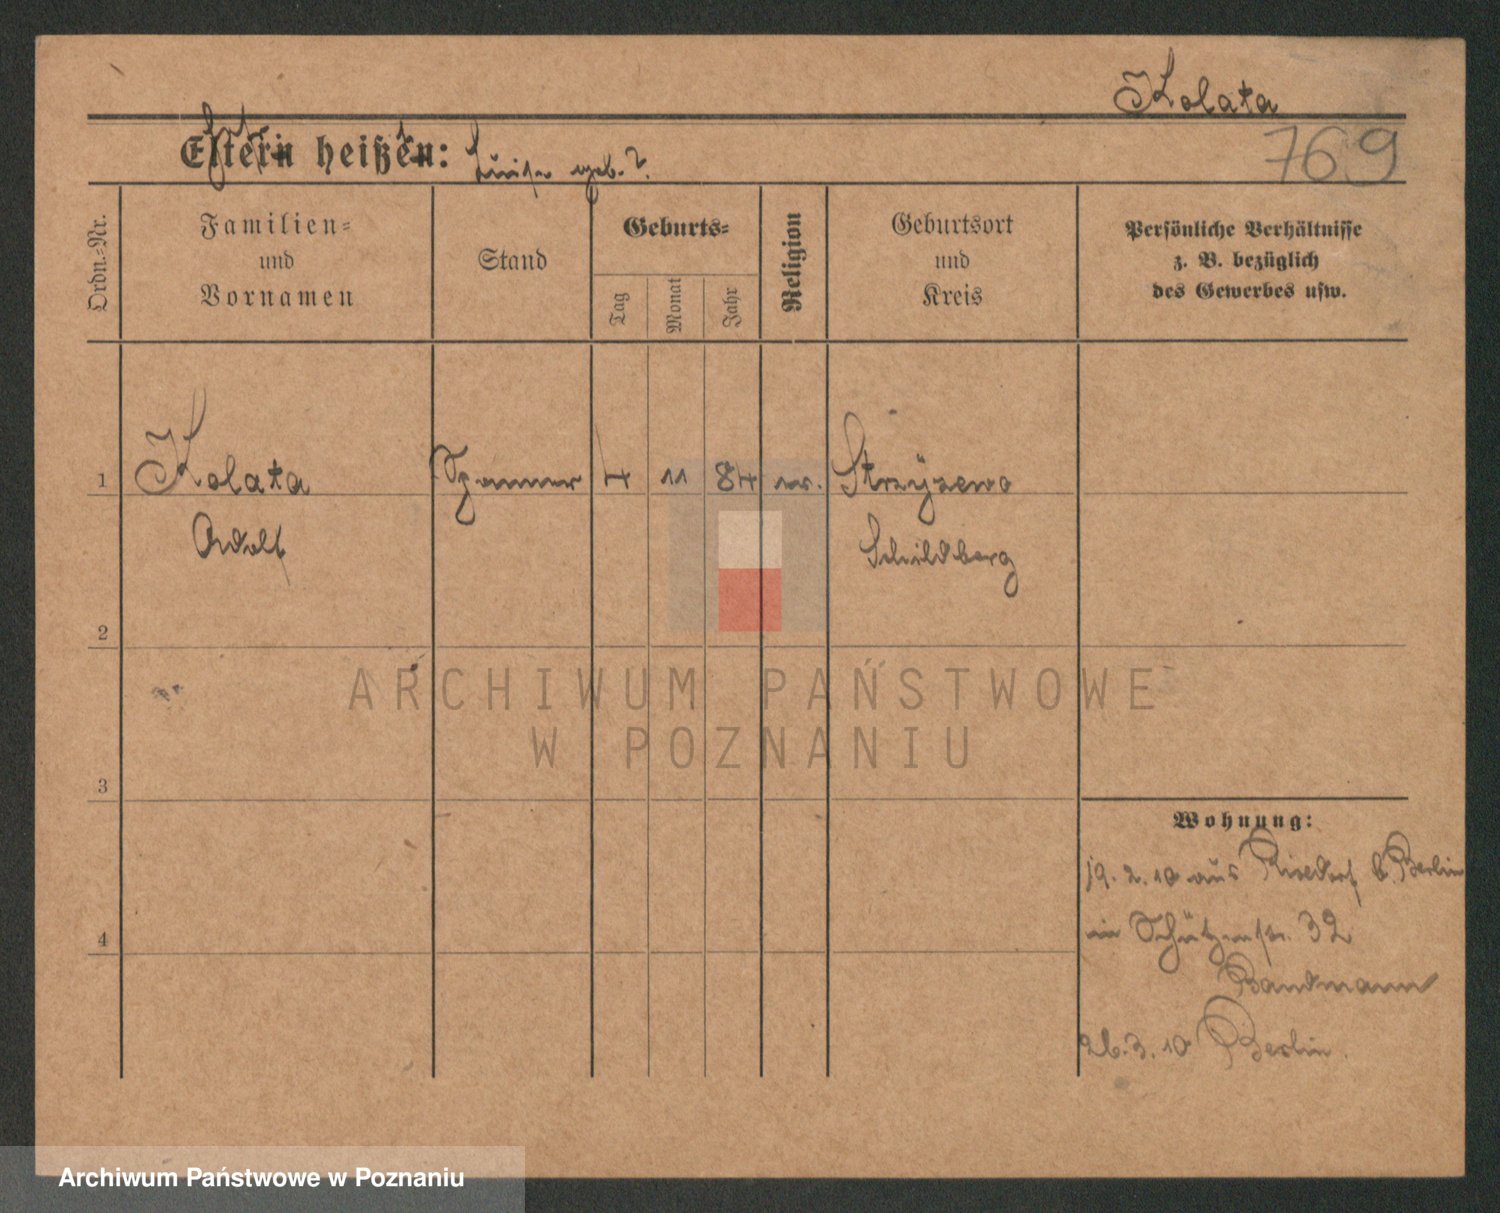 Kolata
769
Eltern heißen: Luise geb. ?
Ordn.-Nr.
Familien-
und
Vornamen
Stand
Geburts-
Tag
Monat
Jahr
Religion
Geburtsort
und
Kreis
Persönliche Verhältnisse
z. B. bezüglich
des Gewerbes usw.
1 Kolata 4 11 84 Strzyżewo
Adolf Schildberg
2
3
4
Wohnung:
19. 2. 10 aus Rixdorf b. Berlin
in Schützenstr. 32
Bandmann
26. 3. 10 Berlin.
ARCHIWUM PAŃSTWOWE
W POZNANIU
Archiwum Państwowe w Poznaniu